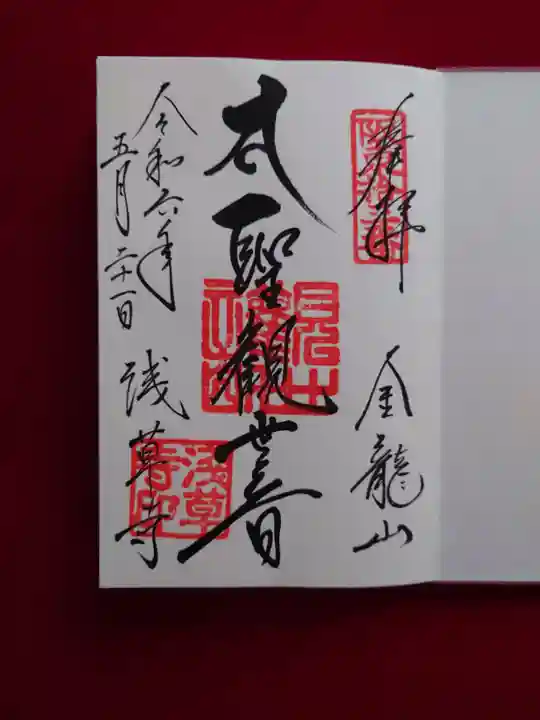 奉拝
金龍山
大聖観世音
浅草寺
令和六年
五月二十一日